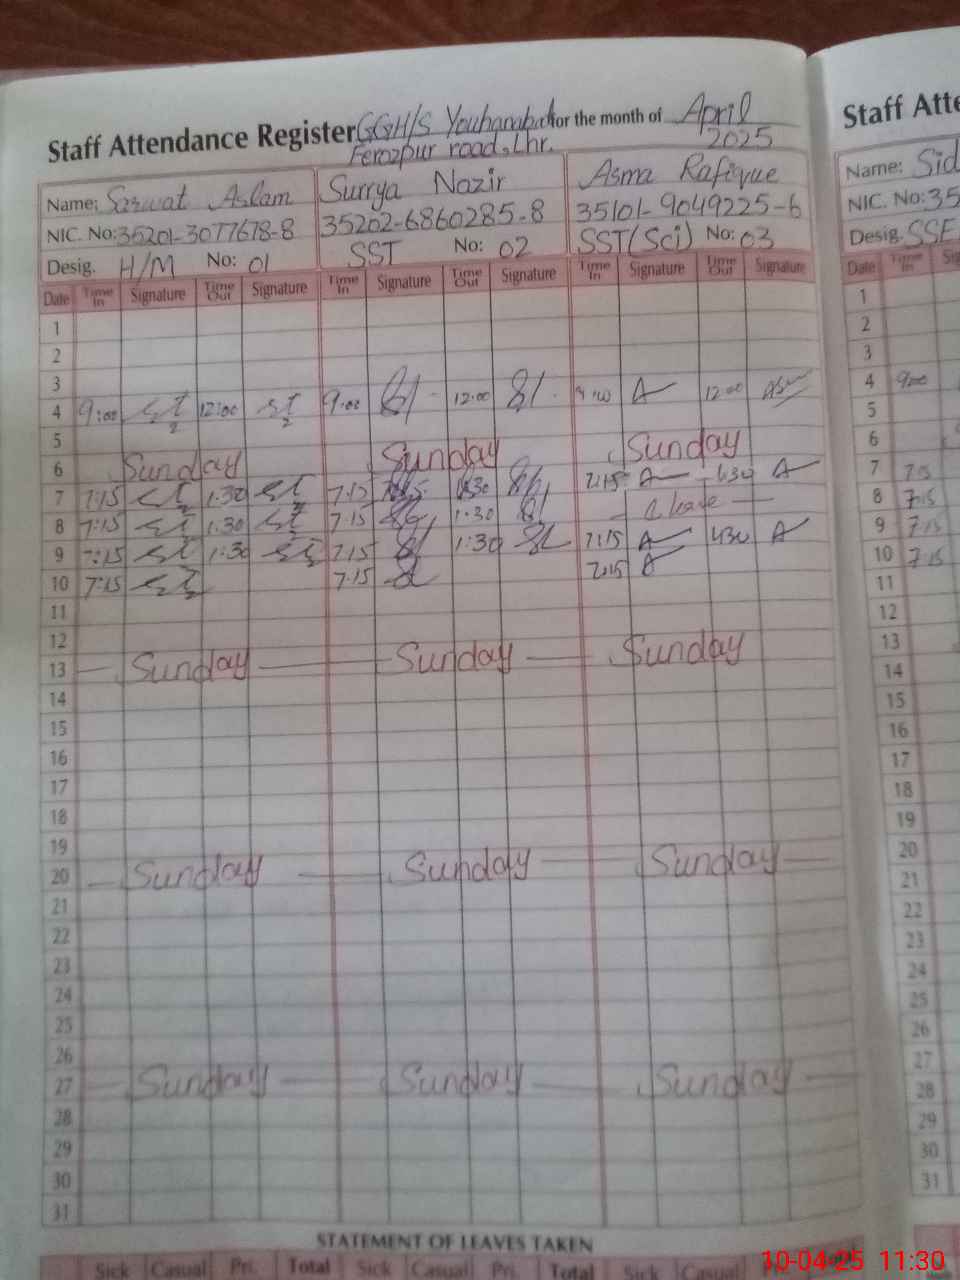 Staff Attendance Register GGH/S Youhanabad for the month of April 2025
Ferozpur road, Lhr.
Name: Sarwat Aslam Surrya Nazir Asma Rafique
NIC. No: 35201-3077678-8 35202-6860285-8 35101-9049225-6
Desig. H/M No: 01 SST No: 02 SST (Sci) No: 03
Date Time In Signature Time Out Signature Time In Signature Time Out Signature Time In Signature Time Out Signature
1
2
3
4 9:00 12:00 9:00 12:00 12:00
5
6 Sunday Sunday Sunday
7 7:15 1:30 7:15 1:30 7:15 1:30
8 7:15 1:30 7:15 1:30
9 7:15 1:30 7:15 1:30 7:15 1:30
10 7:15 7:15 7:15
11
12
13 Sunday Sunday Sunday
14
15
16
17
18
19
20 Sunday Sunday Sunday
21
22
23
24
25
26
27 Sunday Sunday Sunday
28
29
30
31
STATEMENT OF LEAVES TAKEN
Sick Casual Pri. Total Sick Casual Pri. Total Sick Casual
Staff Atte
Name: Sid
NIC. No: 35
Desig. SSE
Date Time In
1
2
3
4 9:00
5
6
7 7:15
8 7:15
9 7:15
10 7:15
11
12
13
14
15
16
17
18
19
20
21
22
23
24
25
26
27
28
29
30
31
10-04-25 11:30